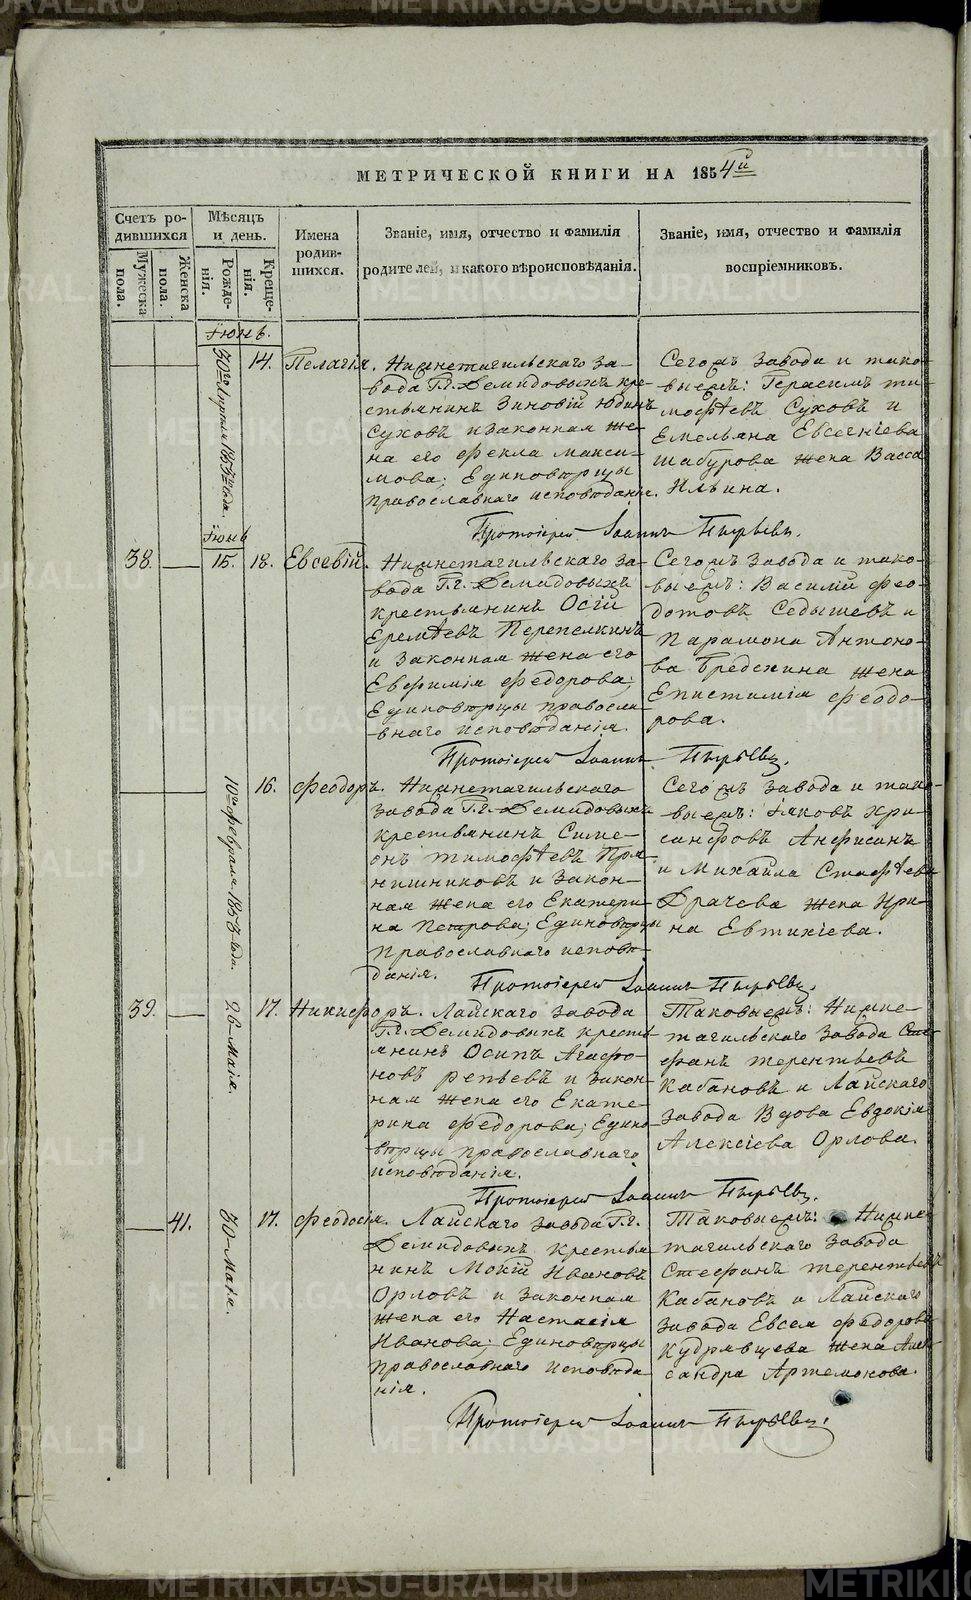 МЕТРИЧЕСКОЙ КНИГИ НА 1854й
Счетъ ро-
дившихся
Мужеска
пола.
Женска
пола.
Мѣсяцъ
и день.
Рожде-
нія.
Креще-
нія.
Имена
родив-
шихся.
Званіе, имя, отчество и фамилія
родителей, и какого вѣроисповѣданія.
Званіе, имя, отчество и фамилія
воспріемниковъ.
Іюнь.
30го Апрѣля 1853го года.
14.
Пелагія.
Нижнетагильскаго за-
вода Гг. Демидовыхъ кре-
стьянинъ Зиновій Юдинъ
Суховъ и законная же-
на его Фекла Макси-
мова; Единовѣрцы
православнаго исповѣданія.
Сегожъ завода и тако-
выежъ: Герасимъ Ти-
мофѣевъ Суховъ и
Емельяна Евсегніева
Шабурова жена Васса
Ильина.
Протоіерей Іоаннъ Пырьевъ.
Іюнь
38.
15.
18.
Евсевій.
Нижнетагильскаго за-
вода Гг. Демидовыхъ
крестьянинъ Осій
Еремѣевъ Перепелкинъ
и законная жена его
Евфимія Федорова;
Единовѣрцы правосла-
внаго исповѣданія.
Сегожъ завода и тако-
выежъ: Василій Фео-
дотовъ Седышевъ и
Парамона Антоно-
ва Бредехина жена
Епистимія Феодо-
рова.
Протоіерей Іоаннъ Пырьевъ.
10го Февраля 1853 года.
16.
Феодоръ.
Нижнетагильскаго
завода Гг. Демидовыхъ
крестьянинъ Симе-
онъ Тимофѣевъ Пря-
нишниковъ и закон-
ная жена его Екатери-
на Петрова; Единовѣрцы
православнаго исповѣ-
данія.
Сегожъ завода и тако-
выежъ: Яковъ Хри-
санфовъ Анфисинъ
и Михаила Стафѣева
Драчева жена Ири-
на Евтихіева.
Протоіерей Іоаннъ Пырьевъ.
39.
26 Маія.
17.
Никифоръ.
Лайскаго завода
Гг. Демидовыхъ кресть-
янинъ Осипъ Агафо-
новъ Репьевъ и закон-
ная жена его Екате-
рина Федорова; Едино-
вѣрцы православнаго
исповѣданія.
Таковыежъ: Нижне-
тагильскаго завода Сте-
фанъ Терентьевъ
Кабановъ и Лайскаго
завода вдова Евдокія
Алексіева Орлова.
Протоіерей Іоаннъ Пырьевъ.
41.
30 Маія.
17.
Феодосія.
Лайскаго завода Гг.
Демидовыхъ крестья-
нинъ Мокій Ивановъ
Орловъ и законная
жена его Настасія
Иванова; Единовѣрцы
православнаго исповѣда-
нія.
Таковыежъ: Нижне-
тагильскаго завода
Стефанъ Терентьевъ
Кабановъ и Лайскаго
завода Евсея Федорова
Кудрявцева жена Алек-
сандра Артемонова.
Протоіерей Іоаннъ Пырьевъ.
METRIKI.GASO-URAL.RU